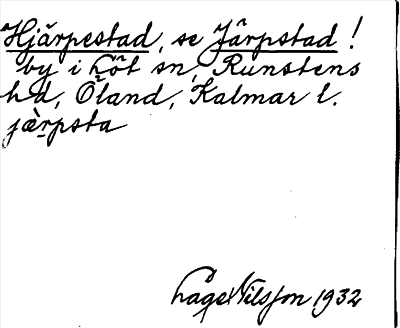 Hjärpestad, se Järpstad!
by i Löt sn, Runstens
hd, Öland, Kalmar l.
jærpsta
Låge Nilsson 1932